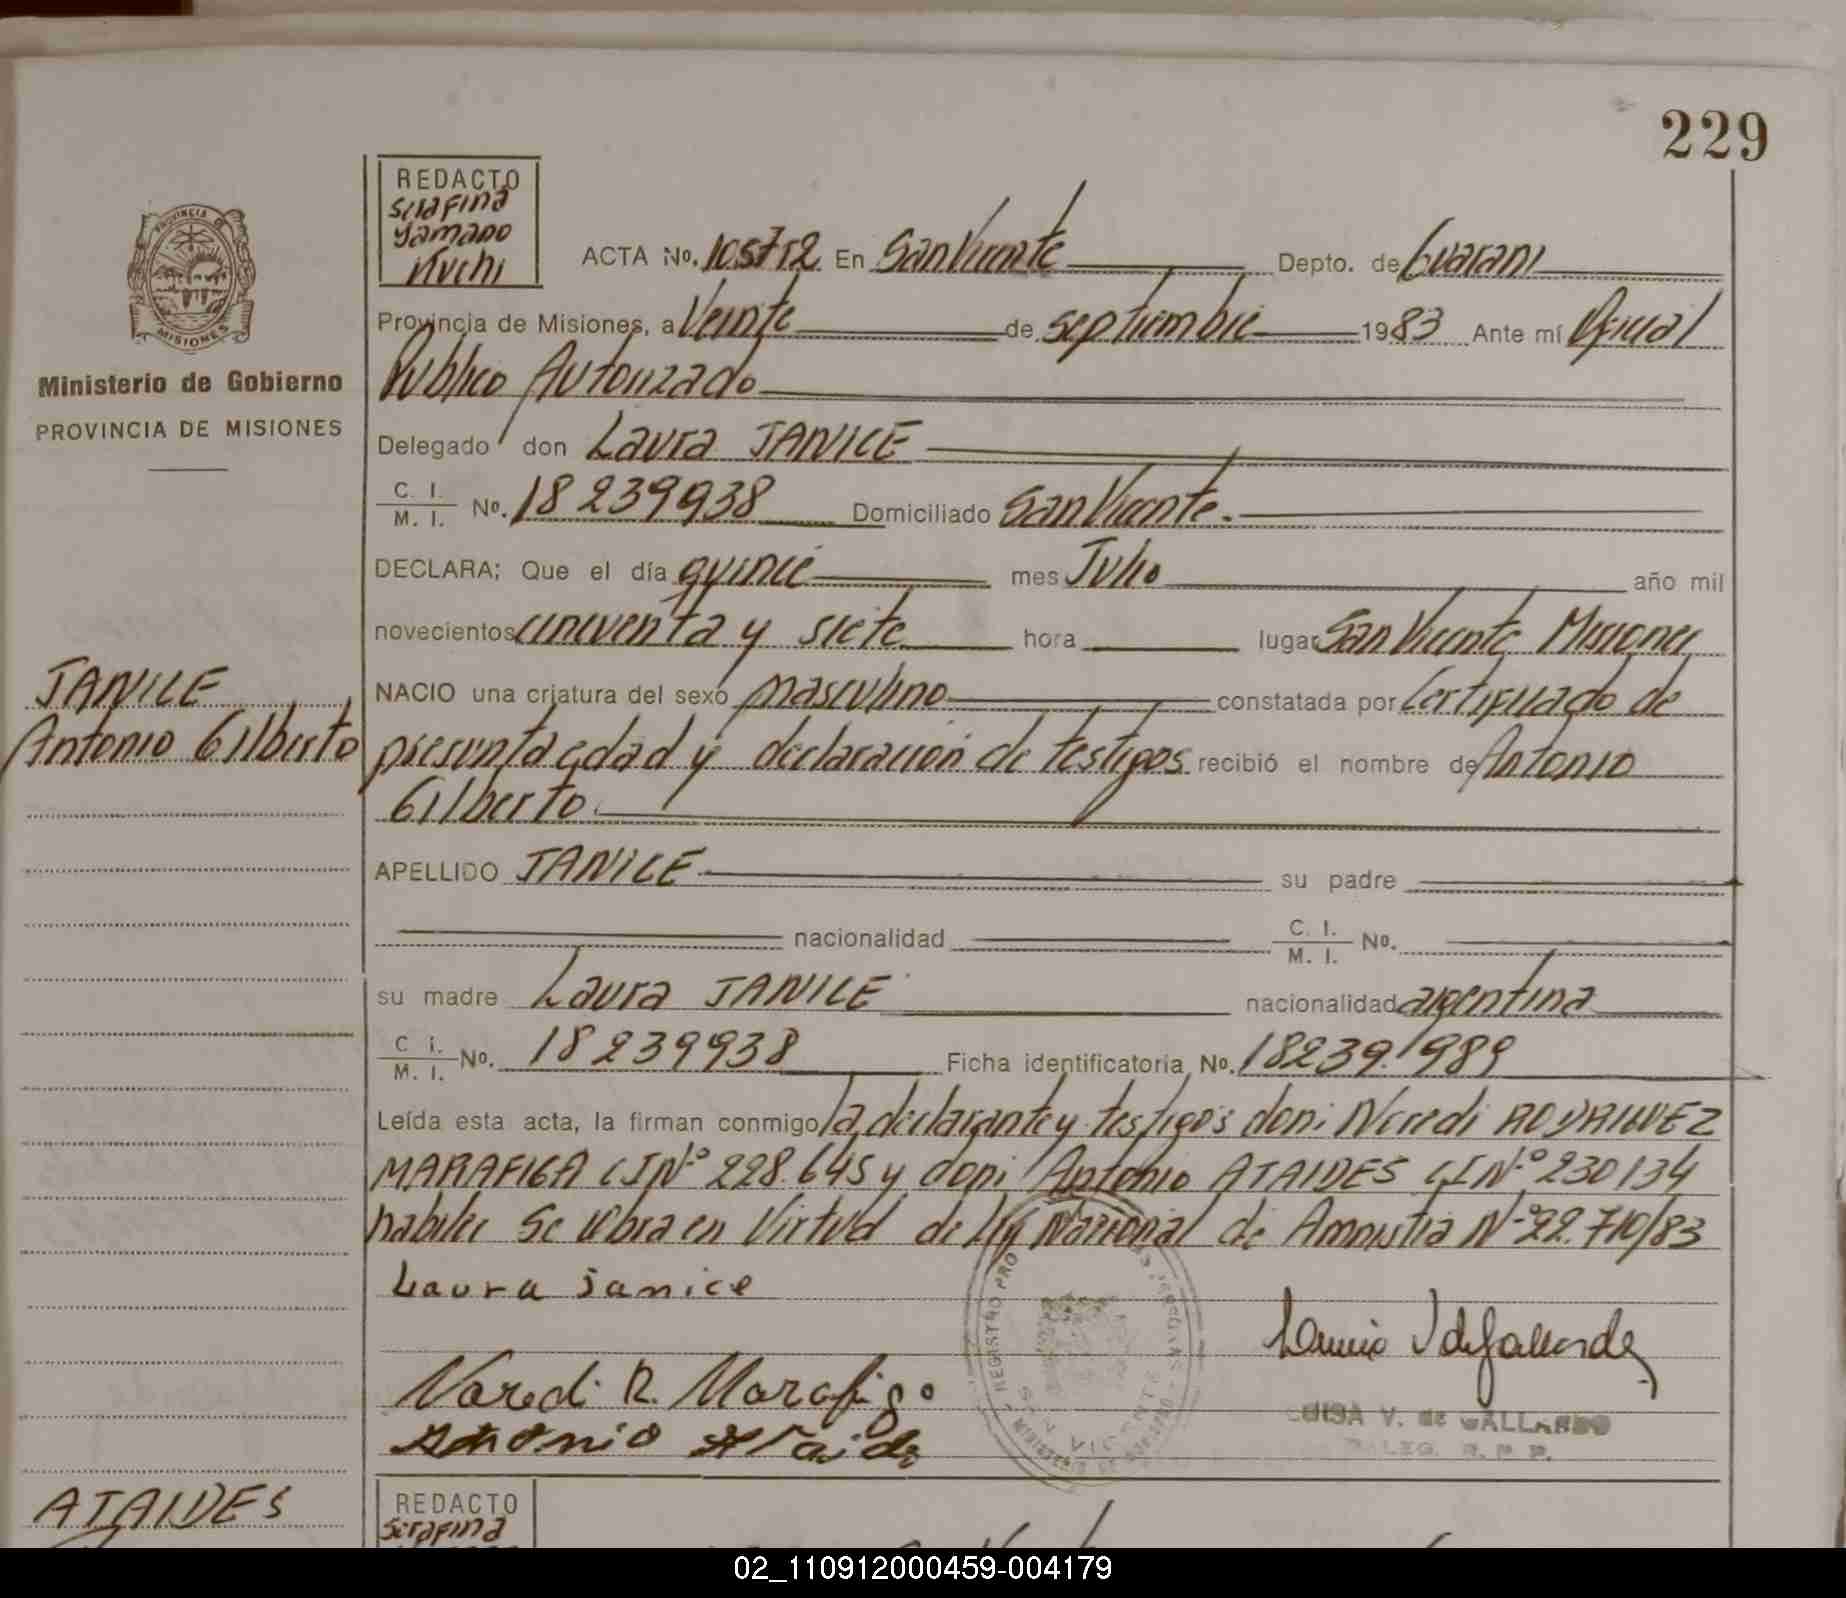 229
REDACTO
Serafina
Yamano
Kuchi
ACTA No. En San Vicente Depto. de Guarani
Provincia de Misiones, a Veinte de septiembre 1983 Ante mí Oficial
Publico Autorizado
Delegado don Laura JANICE
C. I.
M. I. No. 18239938 Domiciliado San Vicente.
DECLARA; Que el día quince mes Julio año mil
novecientos cincuenta y siete hora lugar San Vicente Misiones
NACIO una criatura del sexo masculino constatada por Certificado de
presunta edad y declaración de testigos recibió el nombre de Antonio
Gilberto.
APELLIDO JANICE su padre
nacionalidad C. I.
M. I. No.
su madre Laura JANICE nacionalidad argentina
C. I.
M. I. No. 18239938 Ficha identificatoria No. 18239.989
Leída esta acta, la firman conmigo la declarante y testigos don: Neredi RODRIGUEZ
MARAFIGA CIN.º 228.645 y don: Antonio ATAIDES CIN.º 230134
habiles Se labra en Virtud de Ley Nacional de Amnistia N.º 22.710/83
Laura Janice
Neredi R. Marafigo
Antonio Ataide
LUISA V. de GALLARDO
DELEG. R. P. P.
PROVINCIA DE
MISIONES
Ministerio de Gobierno
PROVINCIA DE MISIONES
JANICE
Antonio Gilberto
ATAIDES
REGISTRO PRO
SAN VICENTE
MINISTERIO DE GOBIERNO
REDACTO
Serafina
02_110912000459-004179